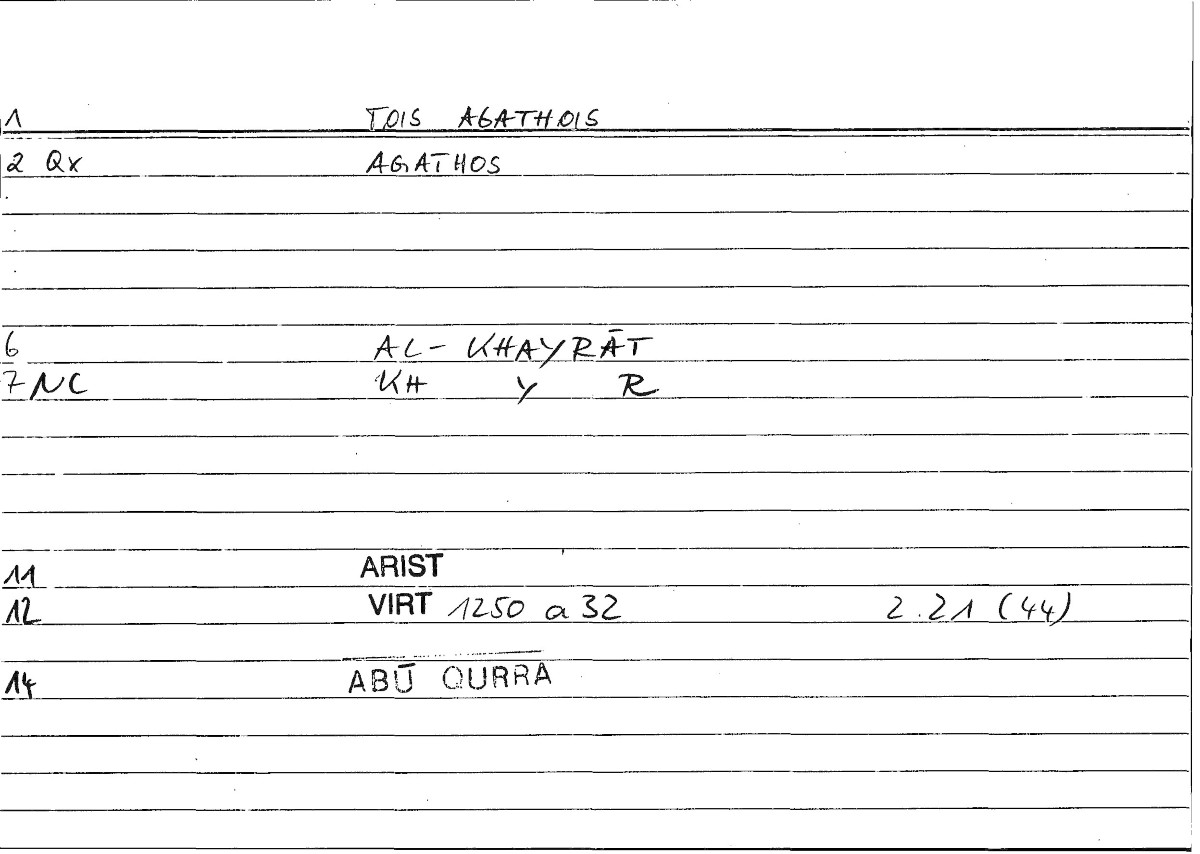 1 TOIS AGATHOIS
2 Qx AGATHOS
6 AL-KHAYRĀT
7 NC KH Y R
11 ARIST
12 VIRT 1250 a 32 2.21 (44)
14 ABŪ QURRA